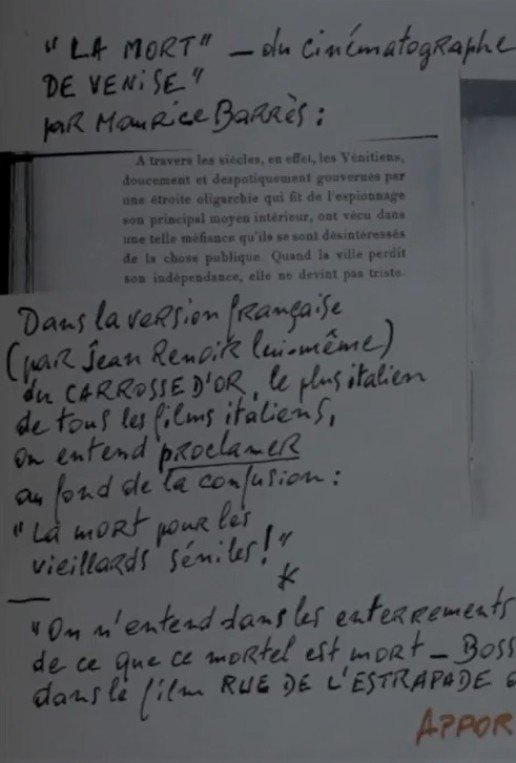 "LA MORT" — du cinématographe
DE VENISE"
par Maurice Barrès :
A travers les siècles, en effet, les Vénitiens,
doucement et despotiquement gouvernés par
une étroite oligarchie qui fit de l'espionnage
son principal moyen intérieur, ont vécu dans
une telle méfiance qu'ils se sont désintéressés
de la chose publique. Quand la ville perdit
son indépendance, elle ne devint pas triste.
Dans la version française
(par Jean Renoir lui-même)
du CARROSSE D'OR, le plus italien
de tous les films italiens,
on entend proclamer
au fond de la confusion :
"La mort pour les
vieillards séniles!"
*
"On n'entend dans les enterrements
de ce que ce mortel est mort — BOSS
dans le film RUE DE L'ESTRAPADE
APPOR